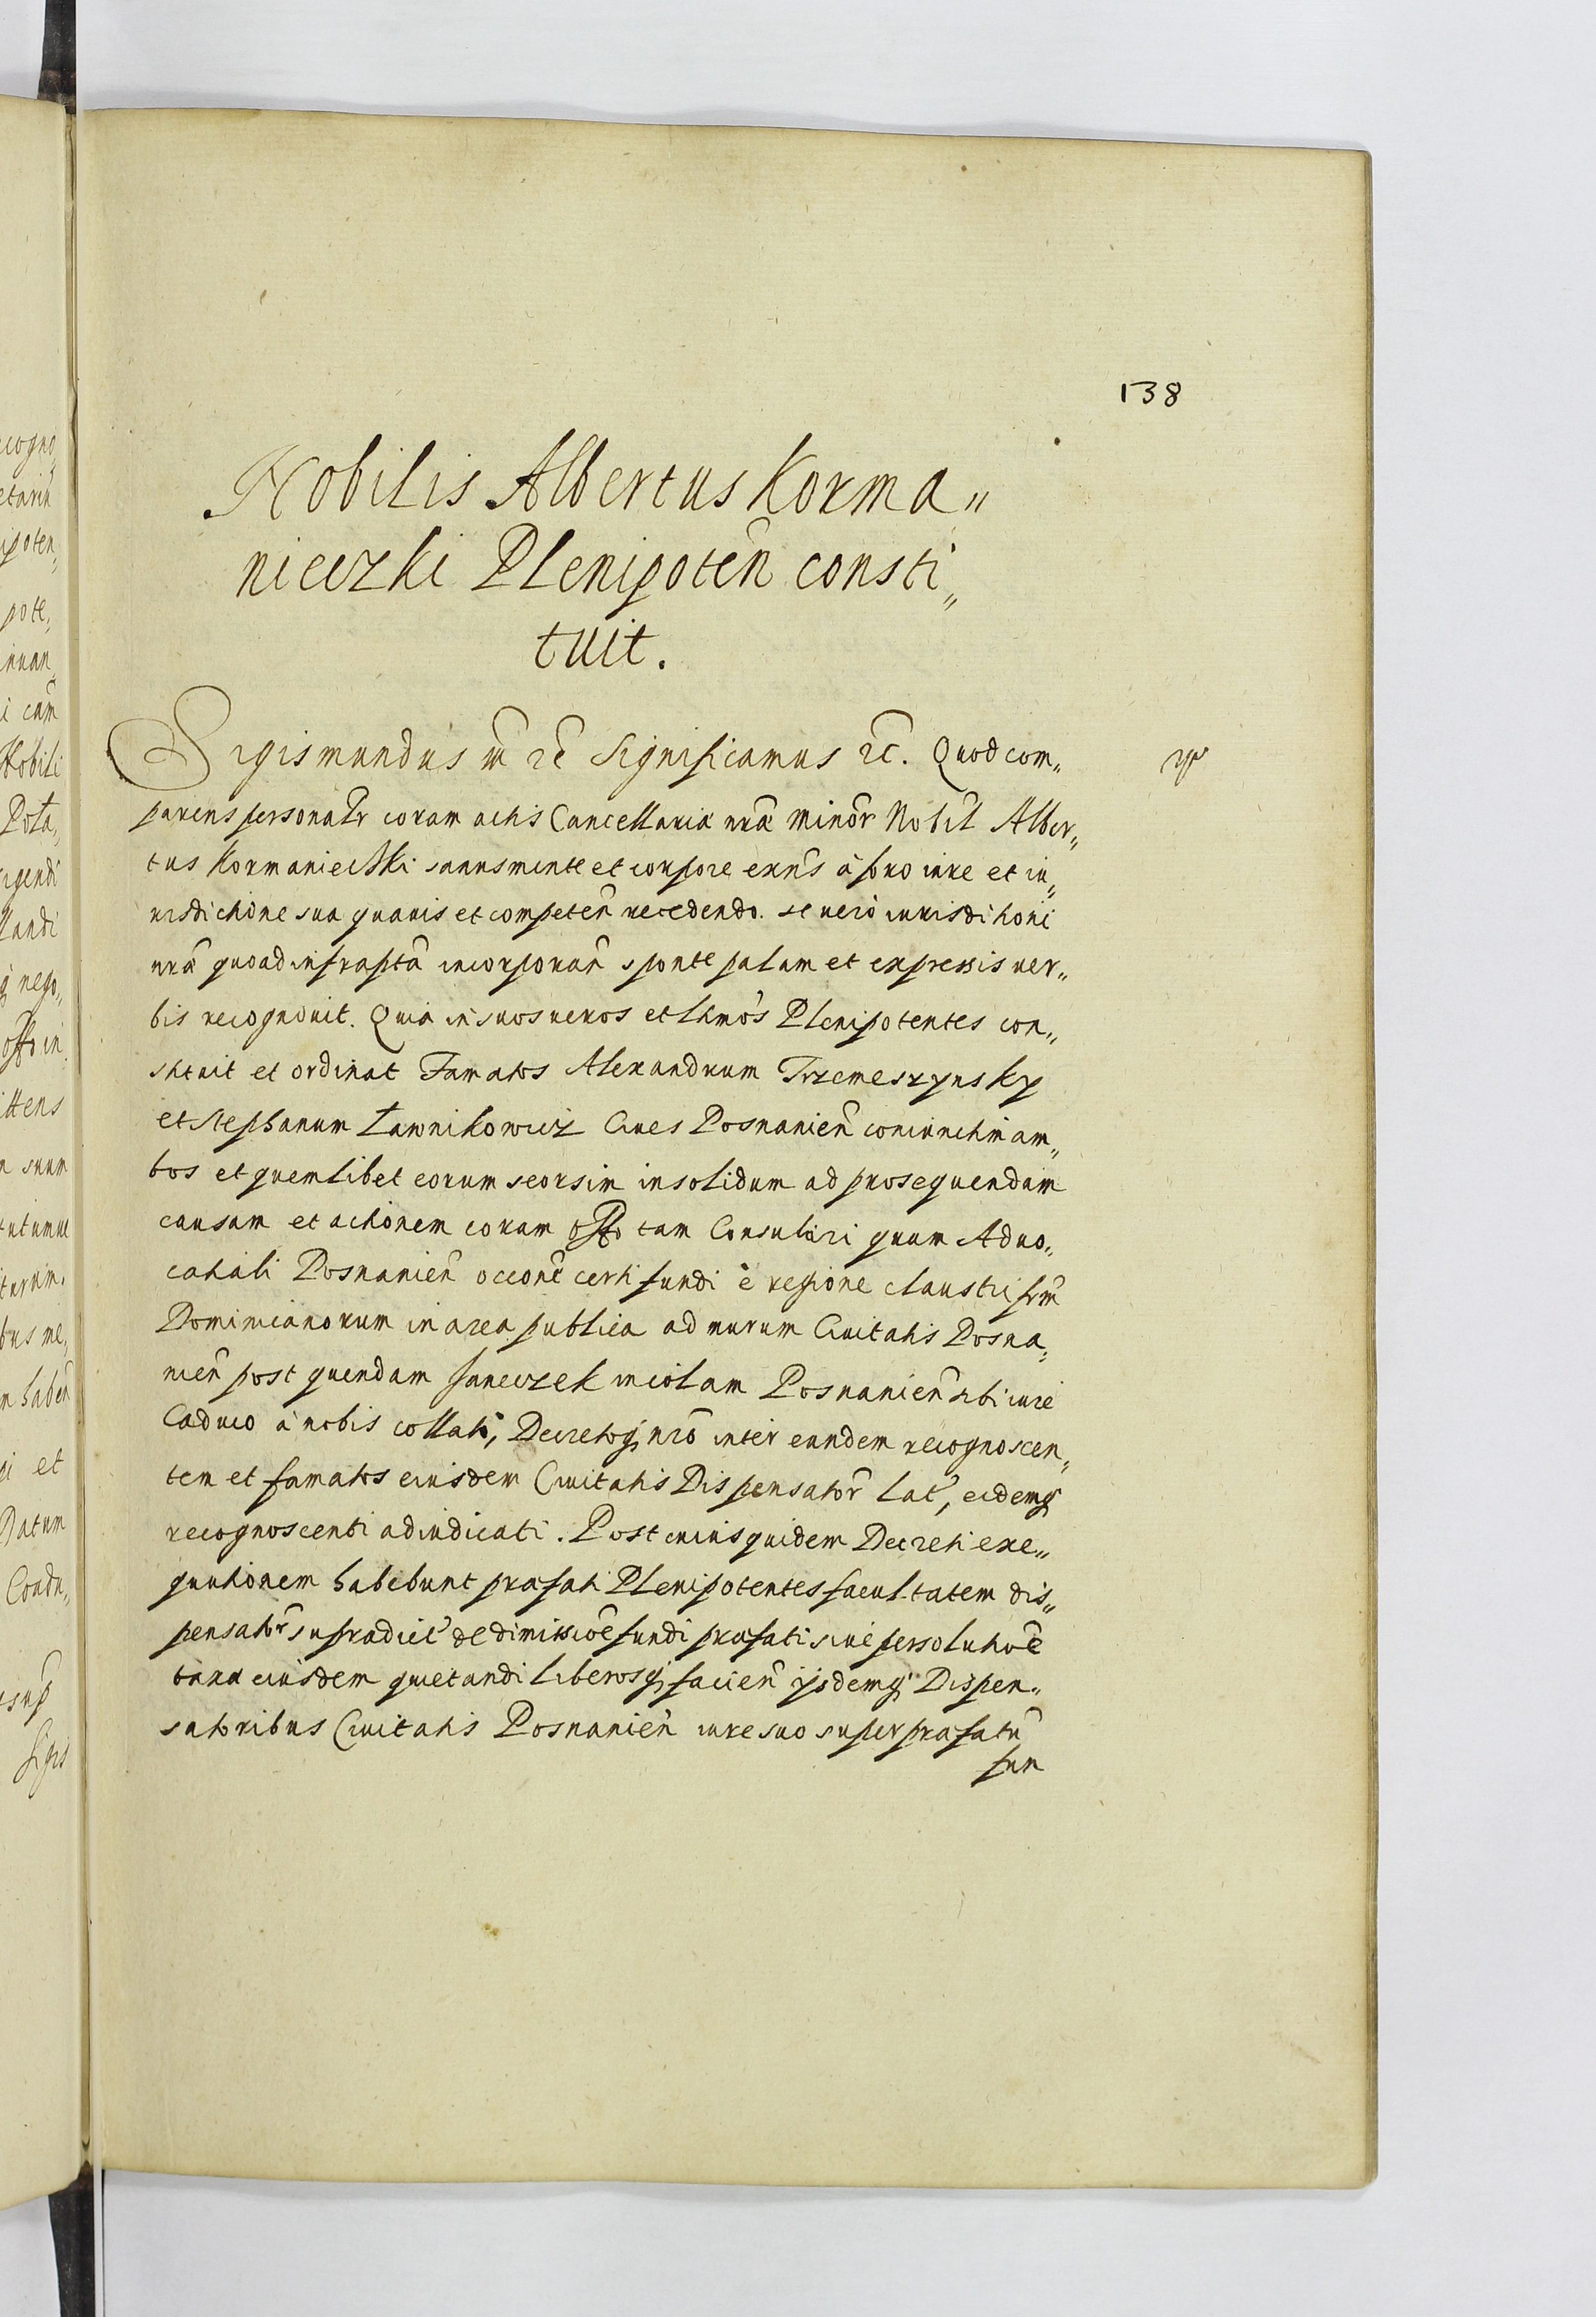 138
Nobilis Albertus Korma„
nieczki Plenipoten̄ consti„
tuit.
Sigismundus m̄ rc̄ Significamus rc̄. Quod com„
parens personalr coram actis Cancellariæ nr̄æ Minōr Nobil̄ Alber„
tus Kormaniecski sanus mente et corpore exn̄s à foro iure et iu„
risdictione sua quauis et competen̄ recedendo. se verò iurisditioni
nr̄æ quoad infrascptā incorporan̄ sponte palam et expressis ver„
bis recognouit. Quia in suos veros et lt̄imos Plenipotentes con„
stituit et ordinat Famatos Alexandrum Trzemeszynsky
et Stephanum Ławnikowicz Ciues Posnanien̄ coniunctim am„
bos et quemlibet eorum seorsim in solidum ad prosequendam
causam et actionem coram offo tam Consulari quam Aduo„
catiali Posnanien̄ occōne certi fundi è regione claustri frm̄
Dominicanorum in area publica ad murum Ciuitatis Posna„
nien̄ post quendam Janeczek incolam Posnanien̄ sibi iure
Caduco à nobis collati, Decretoq; nr̄o inter eundem recognoscen„
tem et famatos eiusdem Ciuitatis Dispensator̄ lat̄, eidemq;
recognoscenti adiudicati. Post cuius quidem Decreti exe„
quutionem habebunt præfati Plenipotentes facultatem dis„
pensator̄ supradict̄ de dimissiōē fundi præfati siue persolutiōē
taxæ eiusdem quietandi liberosq; facien̄ ijsdemq; Dispen„
satoribus Ciuitatis Posnanien̄ iure suo super præfatū
fun